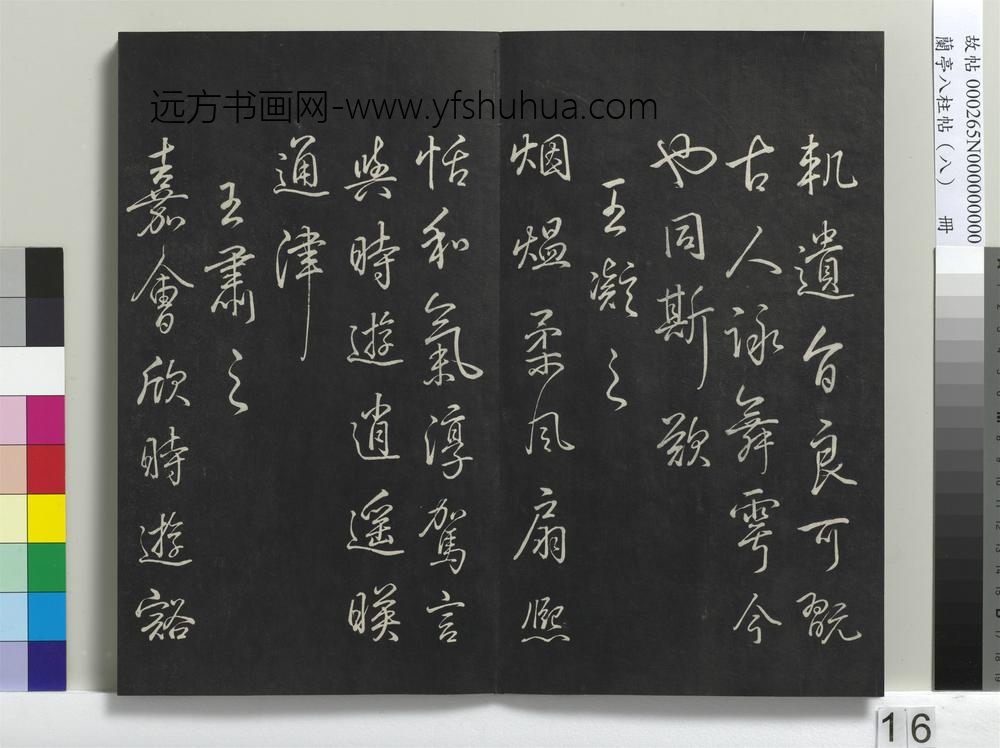 軌遺音良可翫
古人詠舞雩今
也同斯歎
王凝之
烟熅柔風扇熙
恬和氣淳駕言
與時遊逍遥暎
通津
王肅之
嘉會欣時遊豁
远方书画网-www.yfshuhua.com
故帖 000265N000000000
蘭亭八柱帖（八） 冊
16